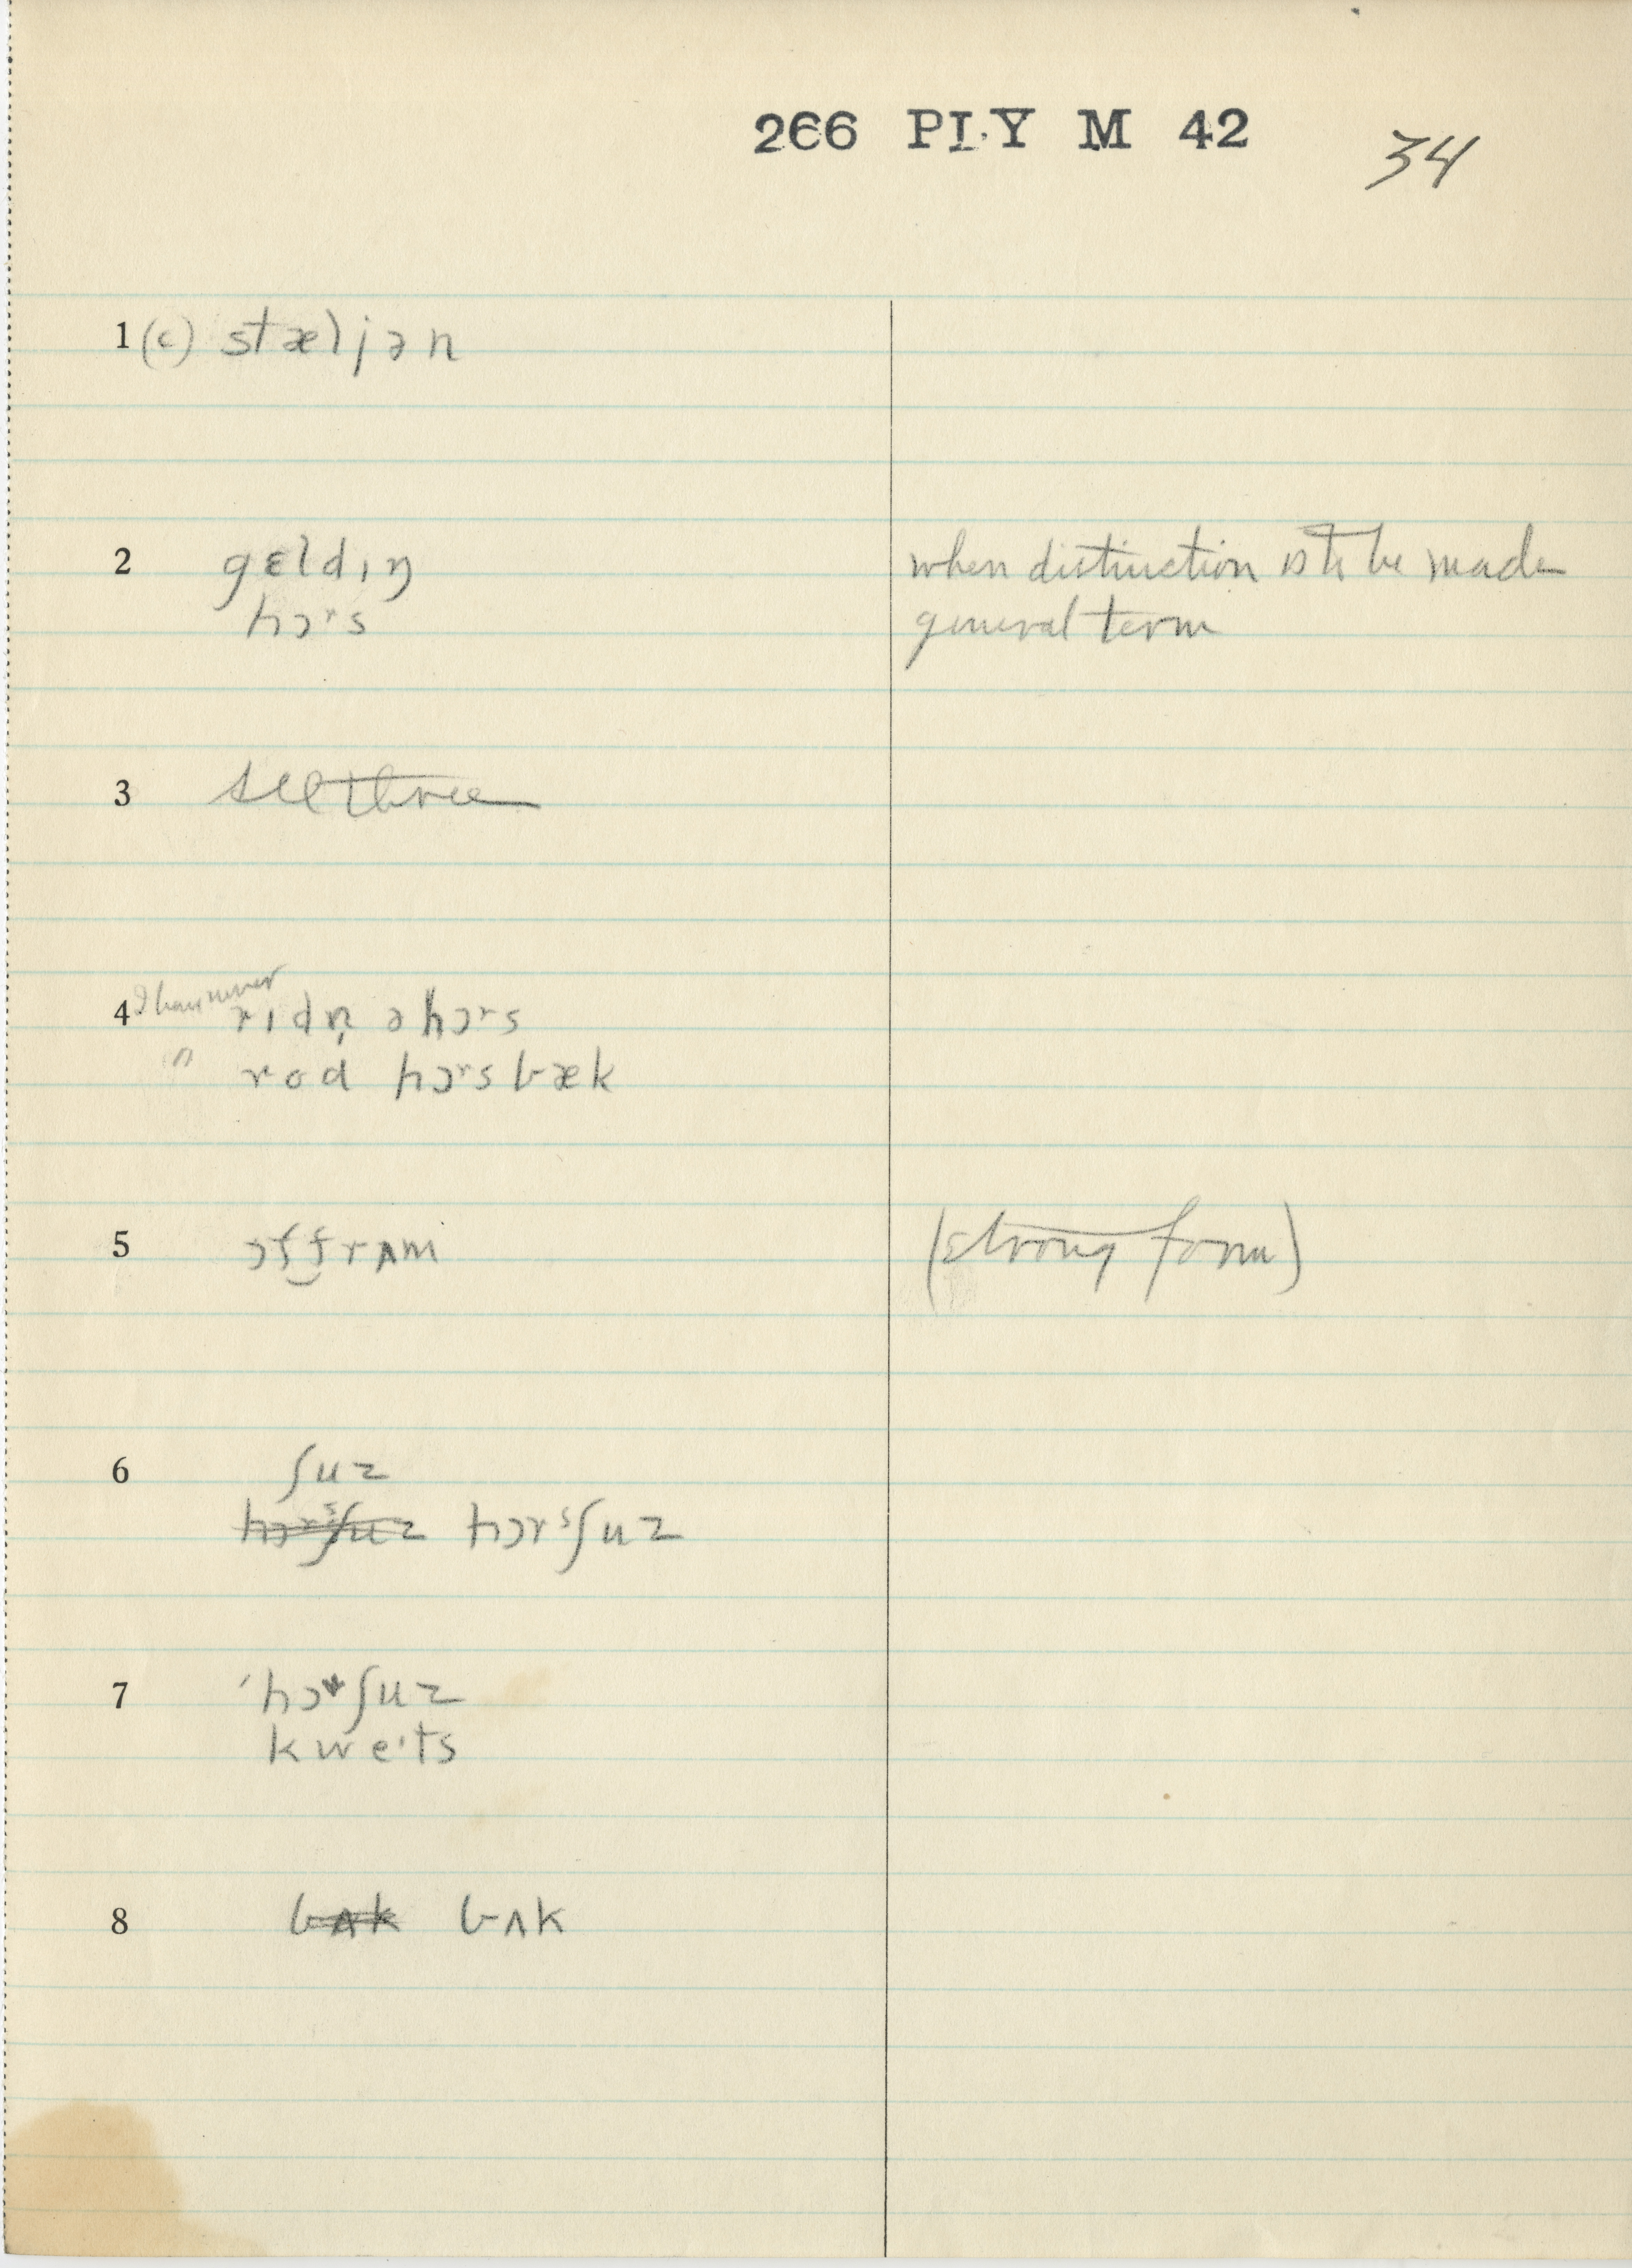 266 PLY M 42 34
1 (c) stæljən
2 gɛldɪŋ when distinction is to be made
hɔrs general term
3 see three
4 I have never rɪdn̩ ə hɔrs
" rod hɔrsbæk
5 ɔf‿frʌm (strong form)
6 ʃuz
hɔrˢʃuz hɔrˢʃuz
7 ˈhɔrʃuz
kweɪts
8 bʌk bʌk